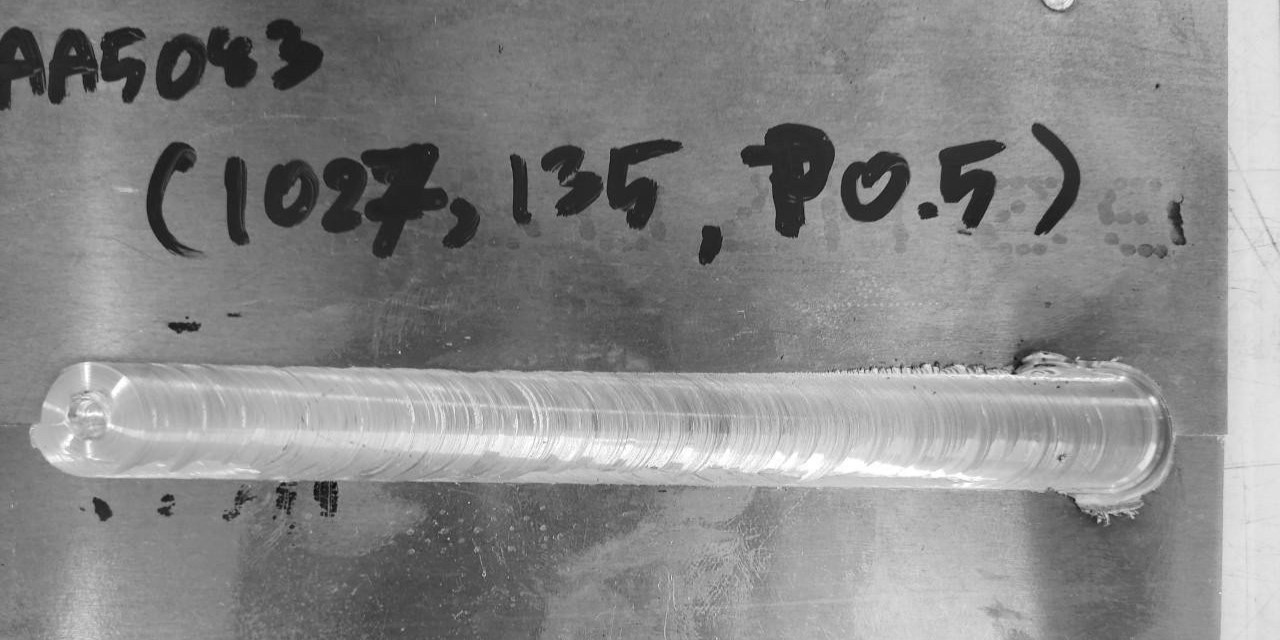 AA5043
(1027, 135, P0.5)